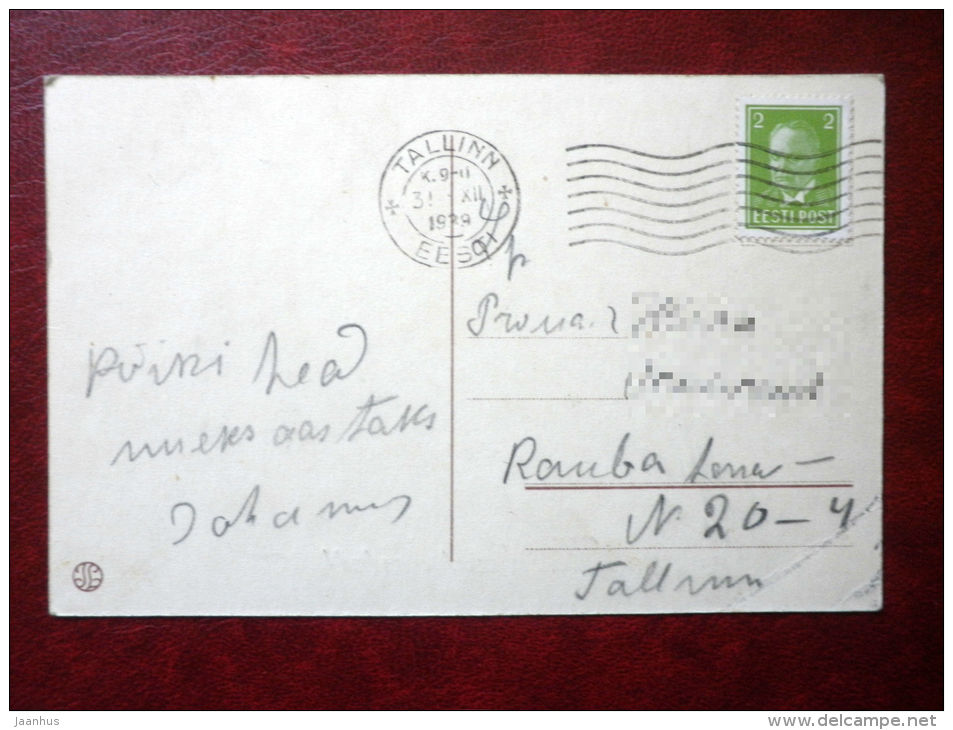 TALLINN
K. 9-11
31 XII
1939
EESTI
2 2
EESTI POST
Prona
Kõiki head
uueks aastaks
Johannes
Rauba
N 20-4
Tallinn
jaanhus
www.delcampe.net